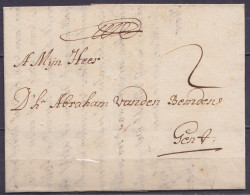 A Mijn Heer
2
D'hr Abraham vanden Bemden
Gent